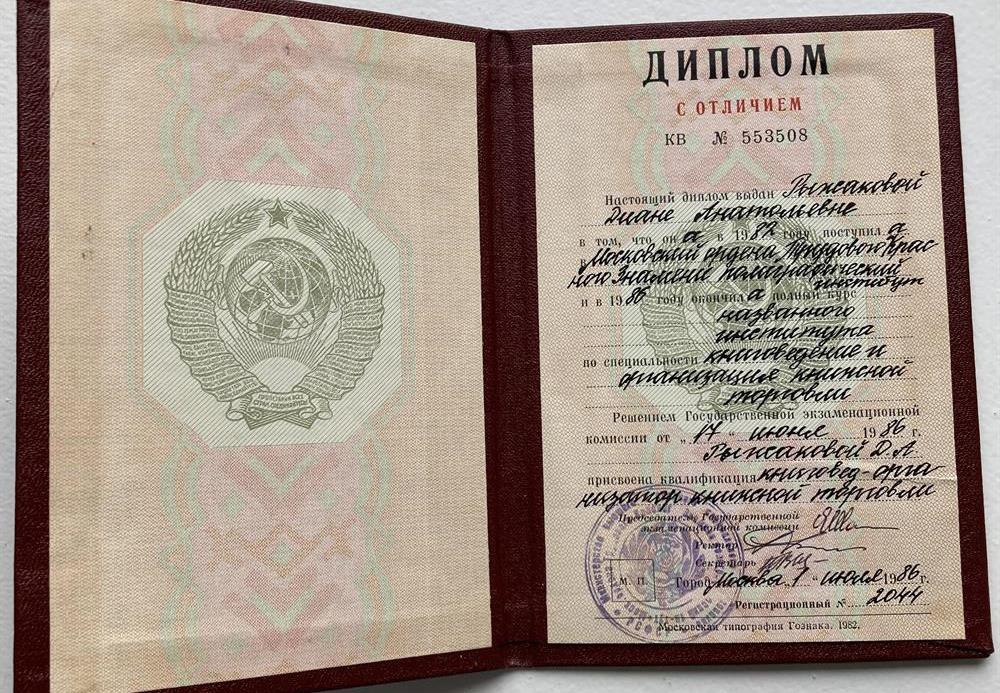 ДИПЛОМ
С ОТЛИЧИЕМ
КВ № 553508
Настоящий диплом выдан Рыжсаковой
Диане Анатольевне
в том, что он а в 1982 году поступил а
в Московский ордена Трудового Крас
ного Знамени полиграфический
институт
и в 1986 году окончил а полный курс
названного
института
по специальности книговедение и
организация книжной
торговли
Решением Государственной экзаменационной
комиссии от „17“ июня 1986 г.
Рыжсаковой Д.А
присвоена квалификация книговед-орга
низатор книжной торговли
Председатель Государственной
экзаменационной комиссии
Ректор
Секретарь
М. П. Город Москва „1“ июля 1986 г.
Регистрационный № 2044
Московская типография Гознака. 1982.